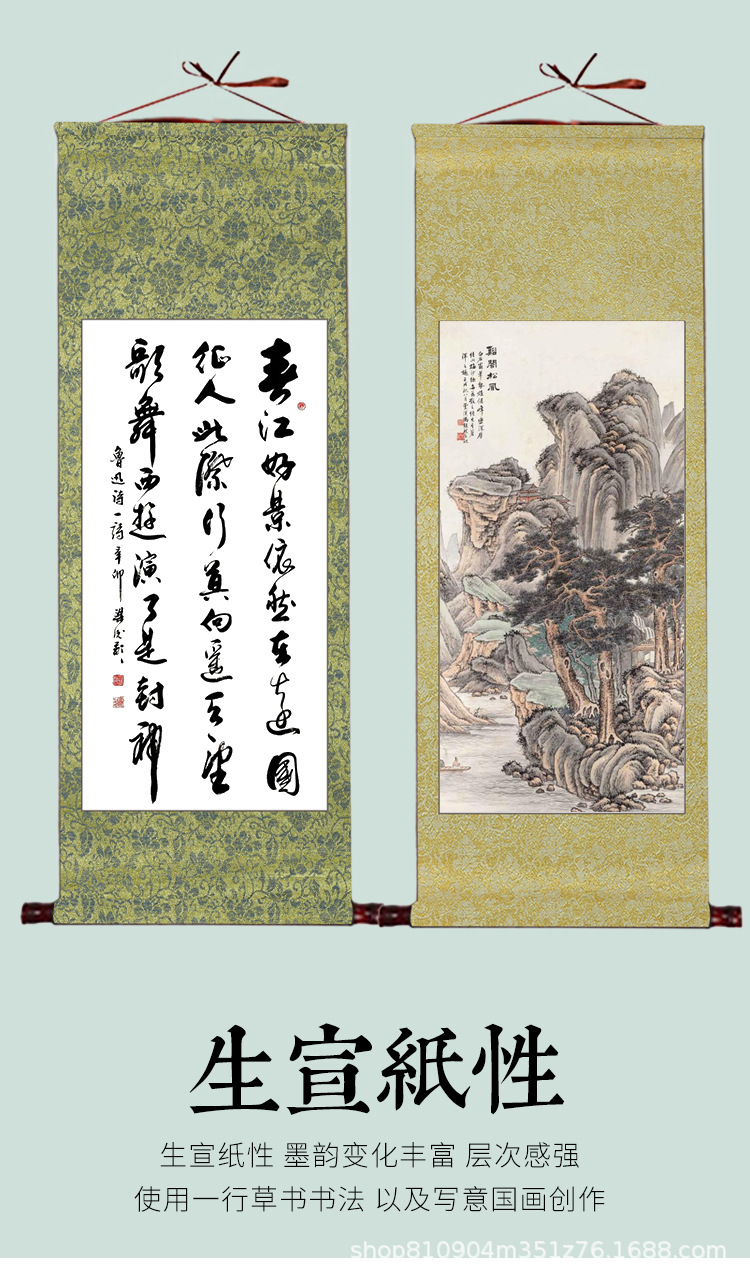 春江好景依然在遠國
征人此際行莫向遥天望
歌舞西遊演了是封神
魯迅诗一 辛卯
松風
生宣紙性
生宣纸性 墨韵变化丰富 层次感强
使用一行草书书法 以及写意国画创作
shop810904m351z76.1688.com